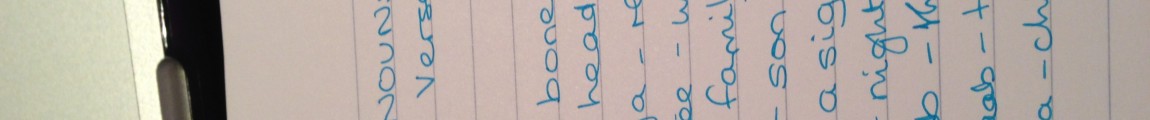 NOUN
vers
bone
head
a - 
be - 
famil
- son
a sig
- night
b - 
ab - t
a - ch